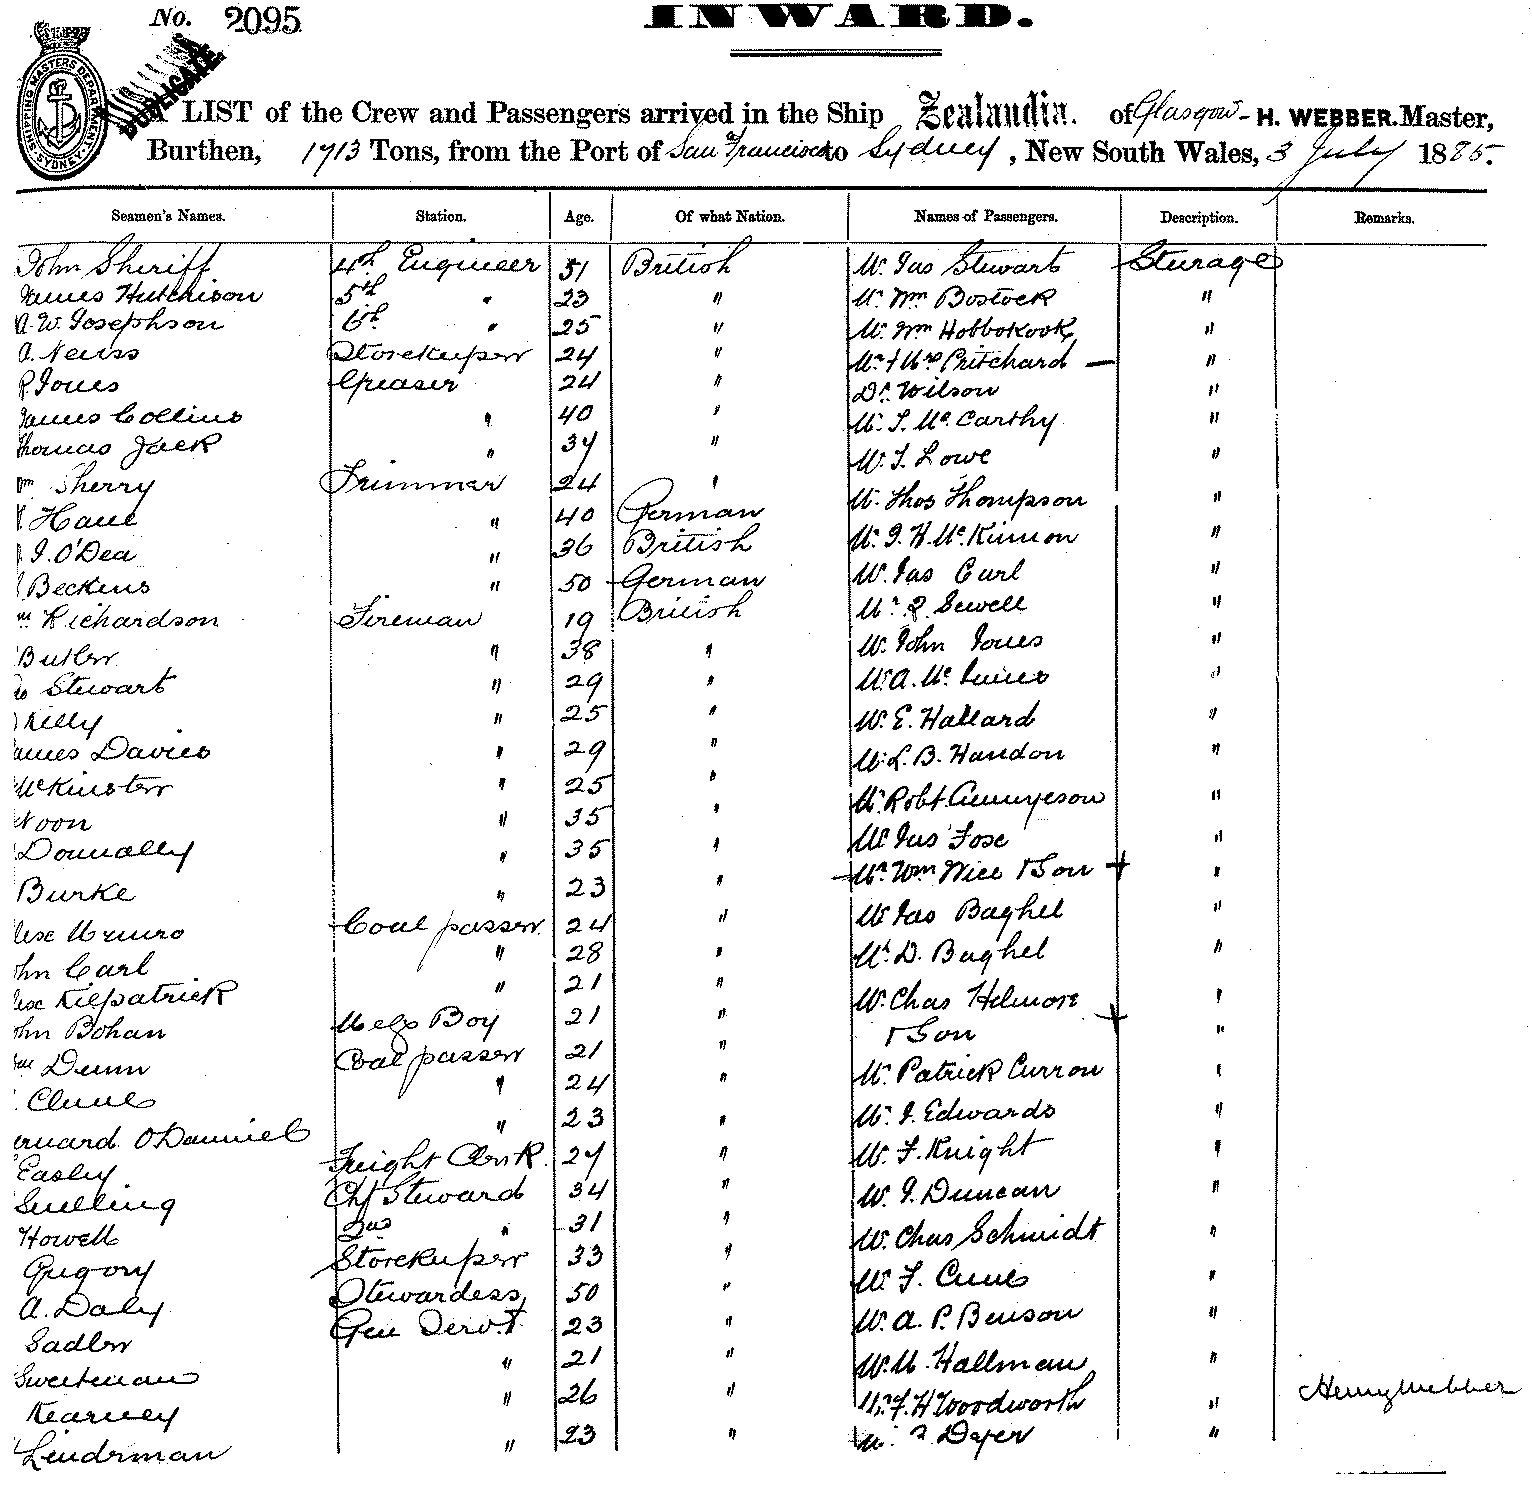 No. 2095
INWARD.
SHIPPING MASTERS DEPARTMENT SYDNEY
DUPLICATE
LIST of the Crew and Passengers arrived in the Ship Zealandia. of Glasgow - H. WEBBER. Master,
Burthen, 1713 Tons, from the Port of San Francisco to Sydney, New South Wales, 3 July 1885.
Seamen's Names. Station. Age. Of what Nation. Names of Passengers. Description. Remarks.
John Sheriff 4th Engineer 51 British Mr. Jas Stewart Sturage
James Hutchison 5th " 23 " Mr. Wm Bostock "
A. W. Josephson 6th " 25 " Mr. Wm Hobbokook "
A. Neiss Storekeeper 24 " Mr & Mrs Pritchard - "
P. Jones Greaser 24 " Dr. Wilson "
James Collins " 40 " Mr. J. McCarthy "
Thomas Jack " 34 " Mr. J. Lowe "
Wm Sherry Trimmer 24 " Mr. Thos Thompson "
Hane " 40 German Mr. J. H. McKinnon "
J. O'Dea " 36 British Mr. Jas Curl "
Beckens " 50 German Mr. R. Sewell "
Richardson Fireman 19 British Mr. John Jones "
Butler " 38 " Mr. A. Mc "
Stewart " 29 " Mr. E. Hallard "
Kelly " 25 " Mr. L. B. Handon "
James Davies " 29 " Mr. Robt "
McKinster " 25 " Mr. Jas Fose "
Noon " 35 " Mr. Wm Wice & Son + "
Donnally " 35 " Mr. Jas Baghel "
Burke " 23 " Mr. D. Baghel "
Alex Munro Coal passer 24 " Mr. Chas Helmore "
John Carl " 28 " & Son "
Alex Kilpatrick " 21 " Mr. Patrick Curron "
John Bohan Mess Boy 21 " Mr. J. Edwards "
Wm Dunn Coal passer 21 " Mr. F. Knight "
Clune " 24 " Mr. J. Duncan "
Bernard O'Danniel " 23 " Mr. Chas Schmidt "
Easley Freight Clerk 27 " Mr. F. "
Snelling Chf Steward 34 " Mr. A. P. Benson "
Howell 2nd " 31 " Mr. M. Hallman "
Gregory Storekeeper 33 " Mr. F. H Woodworth "
A. Daly Stewardess 50 " Dyer "
Sadler Gen Servt 23 "
Sweetman " 21 "
Kearney " 26 " Henry Webber
Linderman " 23 "